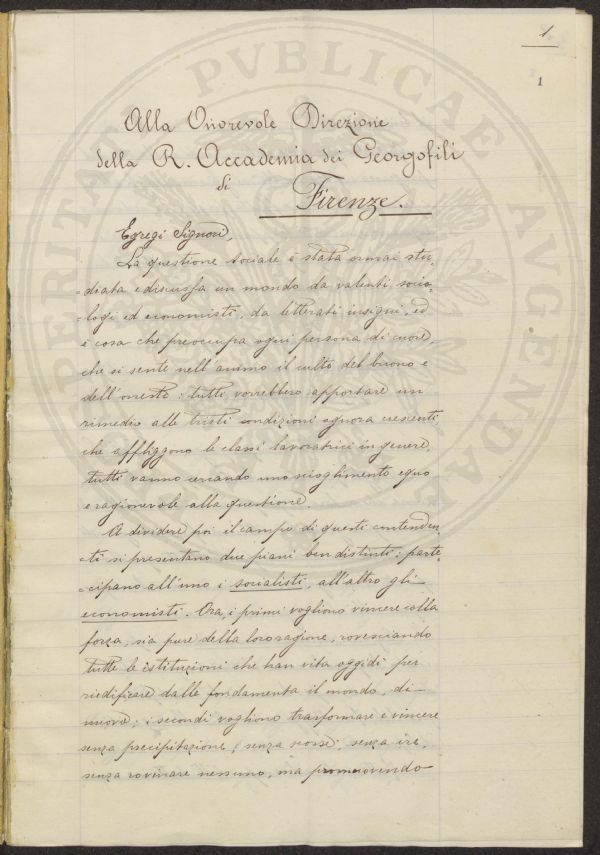 1
1
Alla Onorevole Direzione
della R. Accademia dei Georgofili
di
Firenze.
Egregi Signori,
La questione sociale è stata ormai stu-
-diata e discussa un mondo da valenti socio-
-logi ed economisti, da letterati insigni, ed
è cosa che preoccupa ogni persona di cuore,
che si sente nell'animo il culto del buono e
dell'onesto: tutti vorrebbero apportare un
rimedio alle tristi condizioni ognora crescenti
che affliggono le classi lavoratrici in genere,
tutti vanno cercando uno scioglimento equo
e ragionevole alla questione.
A dividere poi il campo di questi contenden-
-ti si presentano due piani ben distinti: parte-
-cipano all'uno i socialisti, all'altro gli
economisti. Ora, i primi vogliono vincere colla
forza, sia pure della loro ragione, rovesciando
tutte le istituzioni che han vita oggidì per
riedificare dalle fondamenta il mondo, di
nuovo; i secondi vogliono trasformare e vincere
senza precipitazione, senza scosse, senza ire,
senza rovinare nessuno, ma promuovendo
PVBLICAE
AVGENDAE
PROSPERITATI